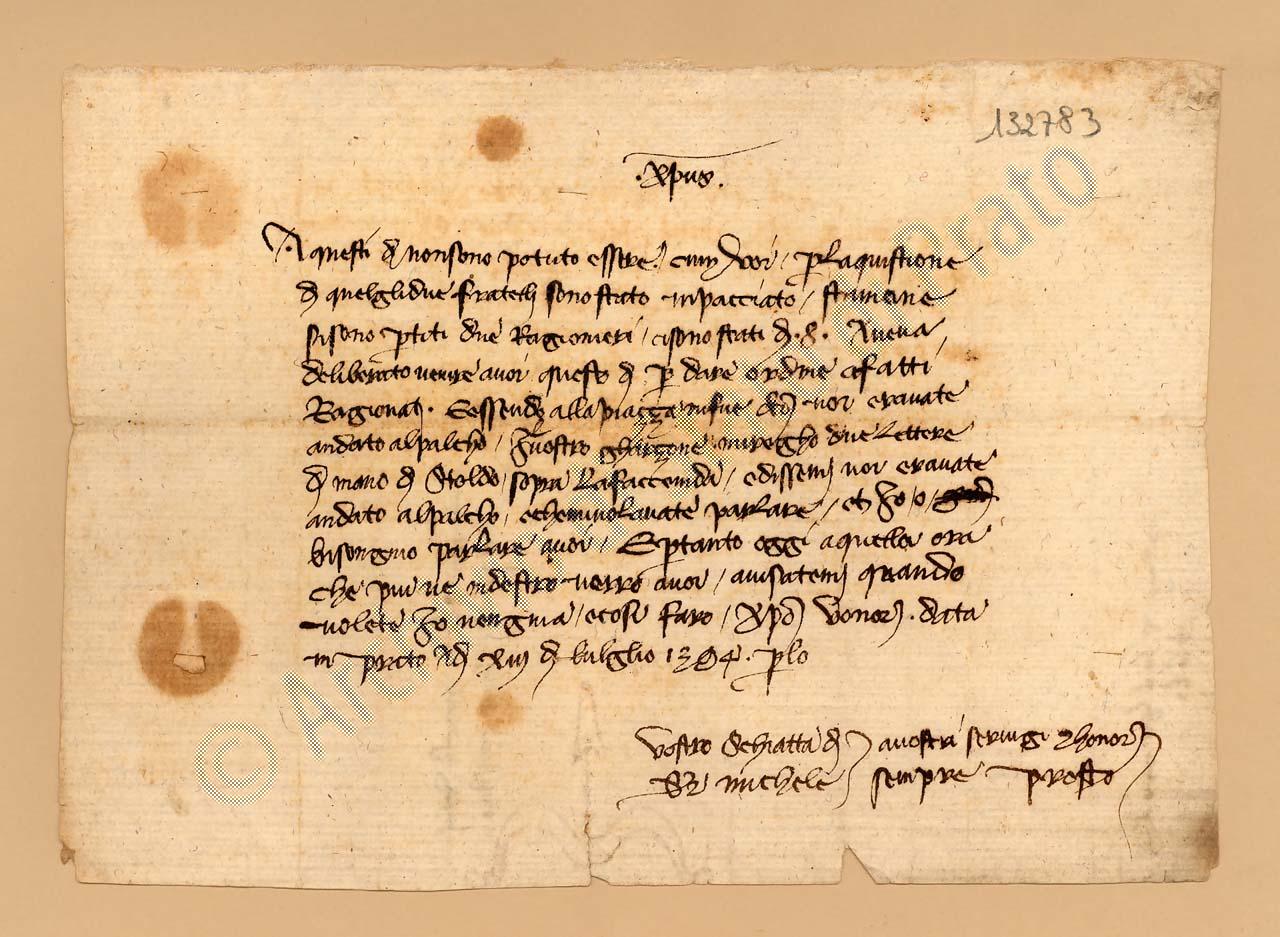 132783
.Xpus.
A questi dì non sono potuto essere con voi / per la quistione
di quelgli due fratelli sono stato inpacciato / stamene
si sono partiti due Ragionieri / ci sono stati dì .8. Aveva
deliberato venire a voi questo dì per dare ordine a fatti
Ragionati. E essendo alla piazza mi fue detto voi eravate
andato al palcho / Il vostro gharzone mi rechò due lettere
di mano di Stoldo / sopra la faccienda / e dissemi voi eravate
andato al palcho / e che mi volavate parlare / et Io / o /
bisongno parlare a voi / E pertanto oggi a quella ora
che piu v'è in destro verrò a voi / avisatemi quando
volete Io vengnia / e così farò / Xpo vi onori. data
in Prato Adì XIIJ di lulglio 1394. per lo
Vostro Schiatta di a vostri servigi e honori
Ser Michele sempre presto
© Archivio di Stato di Prato